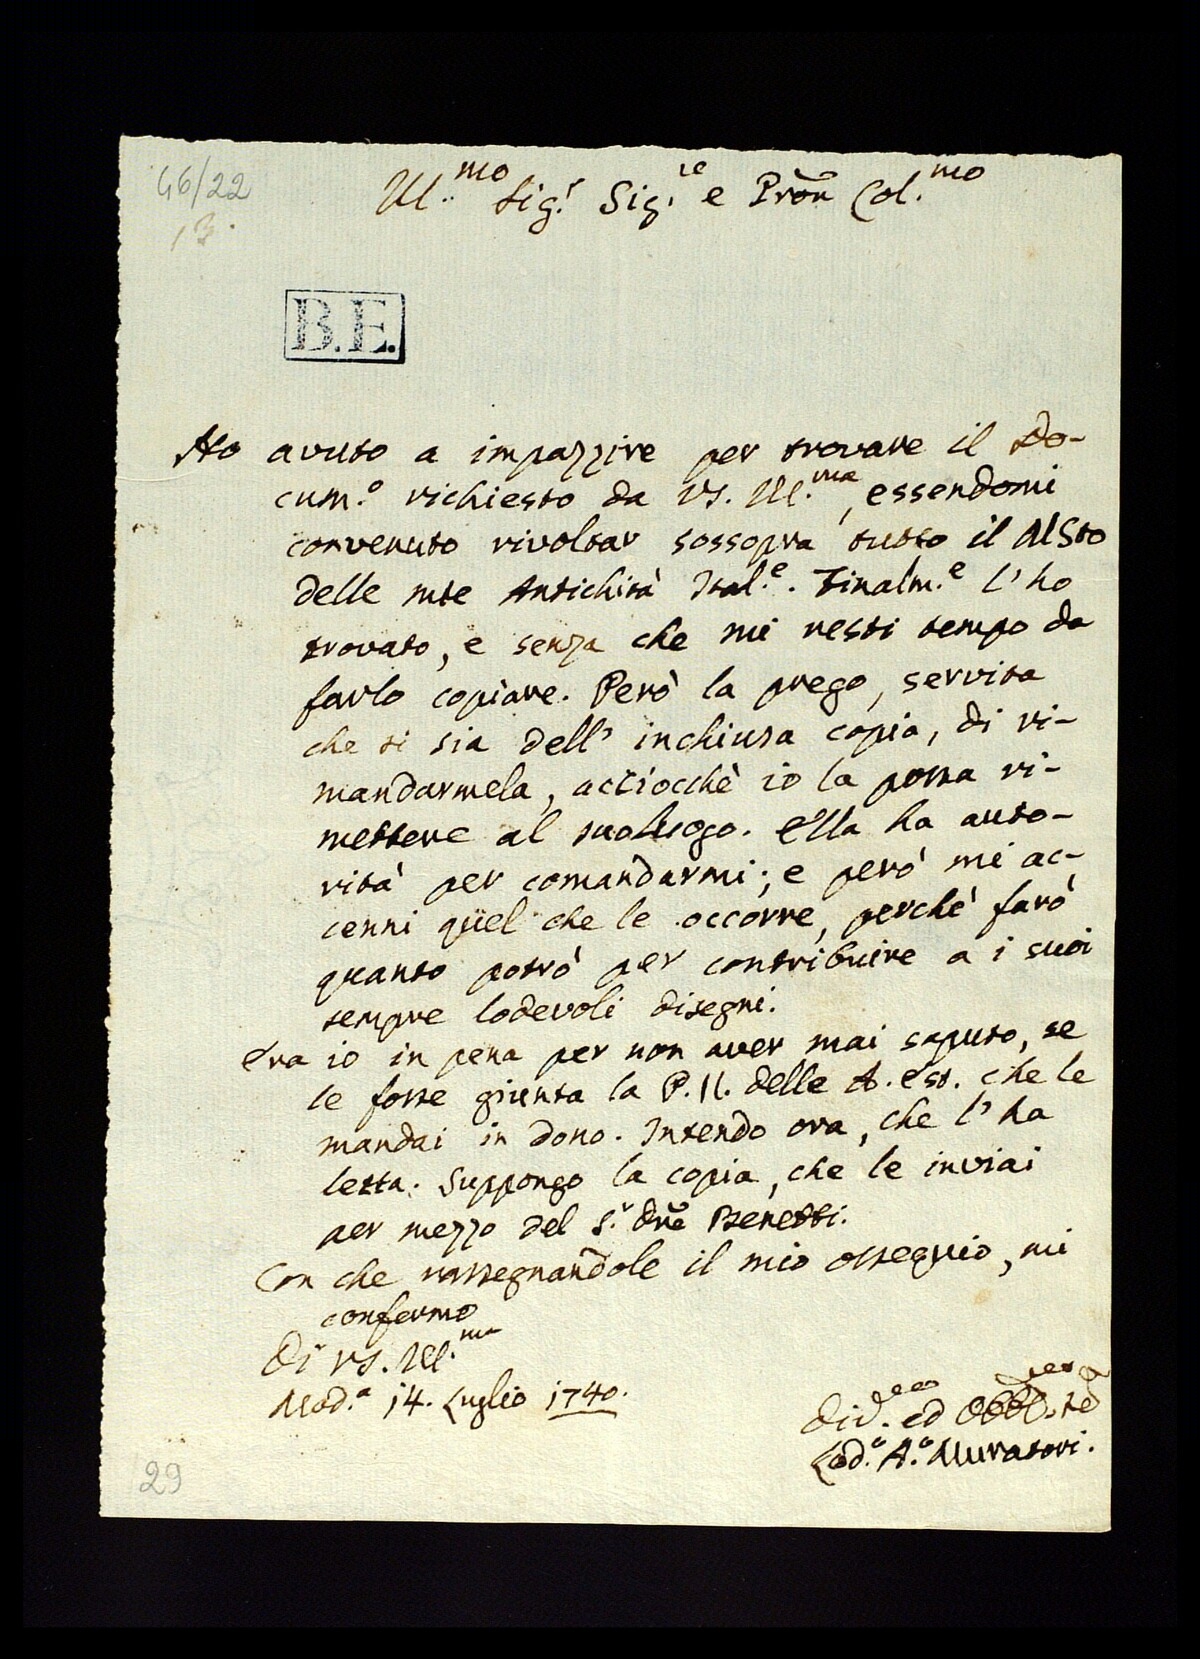 46/22
13.
Ill.mo Sig.r Sig.re e Pròn Col.mo
B.E.
Ho avuto a impazzire per trovare il Do-
cum.o richiesto da VS. Ill.ma, essendomi
convenuto rivoltar sossopra tutto il MSto
delle mie Antichità Ital.e. Finalm.e l'ho
trovato, e senza che mi resti tempo da
farlo copiare. Però la prego, servita
che si sia dell' inchiusa copia, di ri-
mandarmela, acciocchè io la possa ri-
mettere al suo luogo. Ella ha auto-
rità per comandarmi; e però mi ac-
cenni quel che le occorre, perchè farò
quanto potrò per contribuire a i suoi
sempre lodevoli disegni.
Era io in pena per non aver mai saputo, se
le fosse giunta la P. II. delle A. Est. che le
mandai in dono. Intendo ora, che l' ha
letta. Suppongo la copia, che le inviai
per mezzo del S.r Dre Benetti.
Con che rassegnandole il mio ossequio, mi
confermo
Di VS. Ill.ma
Mod.a 14. Luglio 1740.
Div.mo ed Obbl.mo Ser.e
Lod.o A.o Muratori.
29